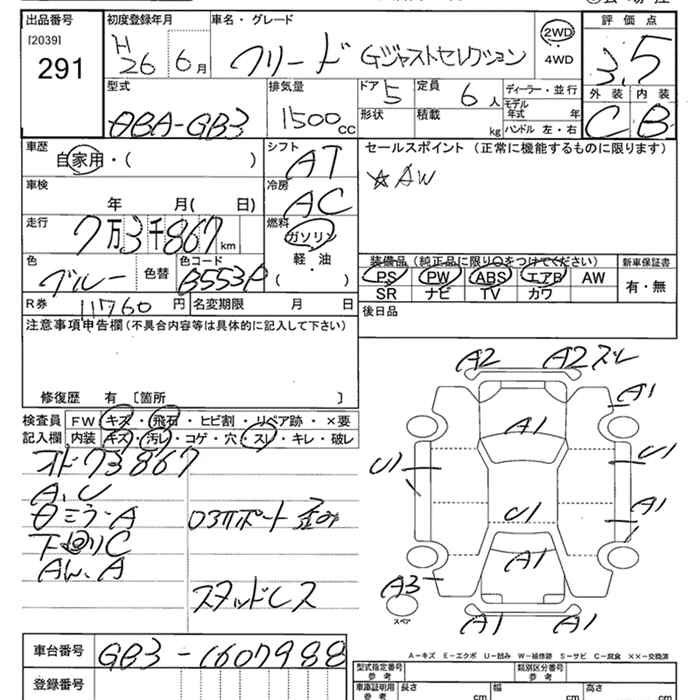 出品番号
[2039]
291
初度登録年月
H26 6月
車名・グレード
フリード Gジャストセレクション
2WD
4WD
評価点
3.5
外装 内装
C B
型式
DBA-GB3
排気量
1500 CC
ドア 5
形状
定員 6 人
積載 kg
ディーラー・並行
モデル年式 年
ハンドル 左・右
車歴
自家用・( )
車検
年 月( 日)
走行
7万3千867 km
色
ブルー
色替
色コード
B553P
R券 11760 円
名変期限 月 日
シフト
AT
冷房
AC
燃料
ガソリン
軽・油
( )
セールスポイント (正常に機能するものに限ります)
☆AW
装備品 (純正品に限り○をつけてください)
PS PW ABS エアB AW
SR ナビ TV カワ
新車保証書
有・無
後日品
注意事項申告欄 (不具合内容等は具体的に記入して下さい)
修復歴 有 〔箇所 〕
検査員
記入欄
FW キズ・飛石・ヒビ割・リペア跡・×要
内装 キズ・汚レ・コゲ・穴・スレ・キレ・破レ
オド73867
A、U
下回りC
AW、A
スタッドレス
A2 A2 スレ
A1
A1
U1 U1
U1 A1
A1
A3
スペア
A1 A1
A-キズ E-エクボ U-凹み W-補修跡 S-サビ C-腐食 ××-交換済
車台番号
GB3-1607988
登録番号
型式指定番号
参考
類別区分番号
参考
車庫証明用
参考
長さ cm
幅 cm
高さ cm